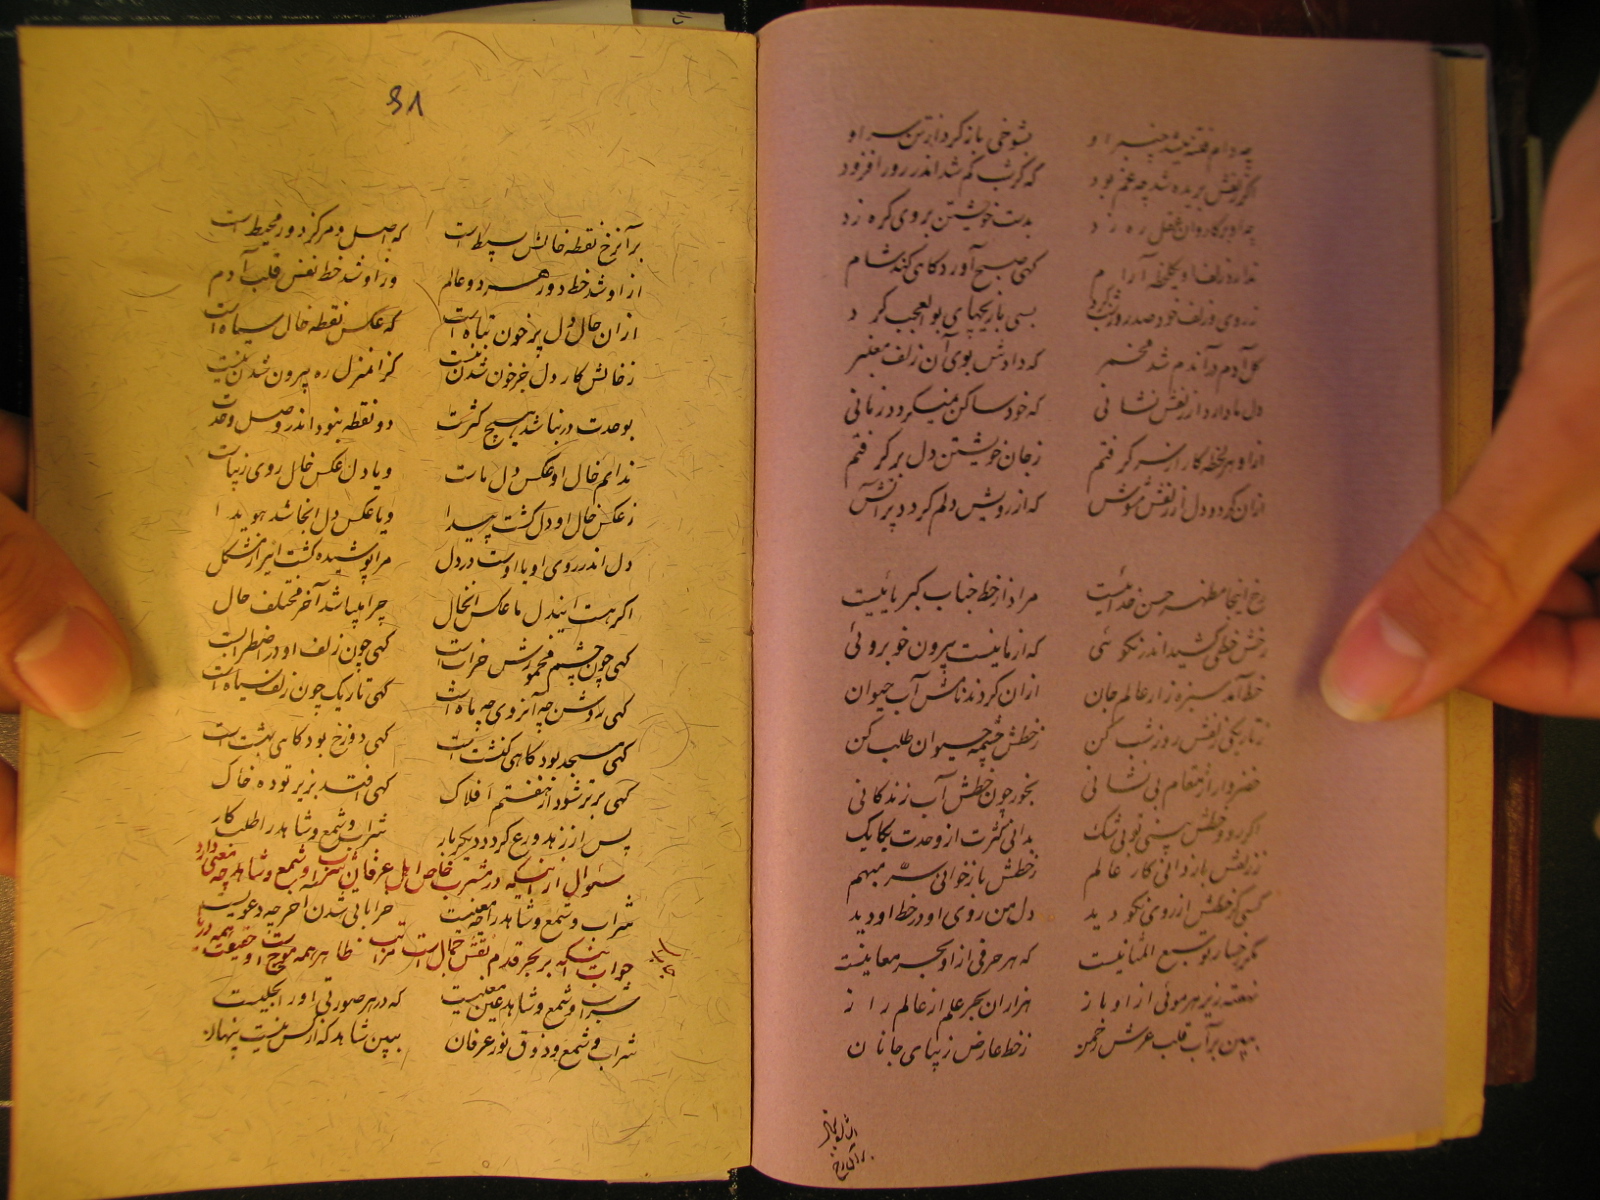 چه دام فتنه میشد چنبر او بشوخی باز کرد از تن سر او
اگر زلفش بریده شد چه غم بود که گر شب کم شد اندر روز افزود
چو او بر کاروان عقل ره زد بدست خویشتن بر وی گره زد
ندارد زلف او یکلحظه آرام گهی صبح آورد کاهی کند شام
ز روی و زلف خود صد روز و شب کرد بسی بازیچهای بوالعجب کرد
گل آدم در آندم شد مخمر که دادش بوی آن زلف معنبر
دل ما دارد از زلفش نشانی که خود ساکن نمیگردد زمانی
ازو هر لحظه کار از سر گرفتم ز جان خویشتن دل بر گرفتم
از آن گردد دل از زلفش مشوش که از رویش دلم گردد پر آتش
رخ اینجا مظهر حسن خدائیست مراد از خط جناب کبریائیست
رخش خطی کشید اندر نکوئی که از ما نیست بیرون خوبروئی
خط آمد سبزه زار عالم جان از آن کردند نامش آب حیوان
ز تاریکی زلفش روز شب کن ز خطش چشمه حیوان طلب کن
خضروار از مقام بی نشانی بخور چون خطش آب زندکانی
اگر روی و خطش بینی تو بی شک بدانی کثرت از وحدت یکایک
ز زلفش باز دانی کار عالم ز خطش باز خوانی سر مبهم
کسی گر خطش از روی نکو دید دل من روی او در خط او دید
مگر رخسار او سبع المثانیست که هر حرفی از او بحر معانیست
نهفته زیر هر موئی از او باز هزاران بحر علم از عالم راز
ببین بر آب قلب عرش رحمن ز خط عارض زیبای جانان
بر آن رخ
81
بر آن رخ نقطه خالش بسیط است که اصل و مرکز دور محیط است
از او شد خط دور هر دو عالم وز او شد خط نفس قلب آدم
از آن حال دل پر خون تباه است که عکس نقطه خال سیاه است
ز خالش کار دل جز خون شدن نیست کز آن منزل ره بیرون شدن نیست
بوحدت در نباشد هیچ کثرت دو نقطه نبود اندر اصل وحدت
ندانم خال او عکس دل ماست و یا دل عکس خال روی زیباست
ز عکس خال او دل گشت پیدا و یا عکس دل انجا شد هویدا
دل اندر روی او یا اوست در دل مرا پوشیده گشت این راز مشکل
اگر هست ایندل ما عکس انخال چرا میباشد آخر مختلف حال
گهی چون چشم مخمورش خرابست گهی چون زلف او در اضطرابست
گهی روشن چه آنروی چه ماه است گهی تاریک چون زلف سیاه است
گهی مسجد بود کاهی کنشت است گهی دوزخ بود کاهی بهشت است
گهی برتر شود از هفتم افلاک گهی افتد بزیر توده خاک
پس از زهد و ورع گردد دیگر بار شراب و شمع و شاهد را طلب کار
سئوال از اینکه در مشرب خاص اهل عرفان شراب و شمع و شاهد چه معنی دارد
شراب و شمع و شاهد را چه معنیست خراباتی شدن آخر چه دعویست
جواب اینکه بر بحر قدم نقش جمال است سراب ظاهر همه موج او حقیقت همه دریا
شراب و شمع و شاهد عین معنیست که در هر صورتی او را تجلیست
شراب و شمع و ذوق نور عرفان ببین شاهد که از کس نیست پنهان